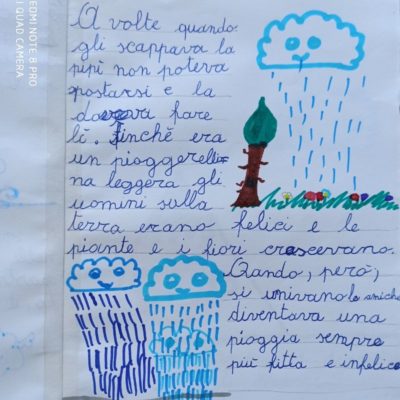 A volte quando
gli scappava la
pipì non poteva
spostarsi e la
doveva fare
lì. Finchè era
un pioggerelli=
na leggera gli
uomini sulla
terra erano felici e le
piante e i fiori crescevano.
Quando, però,
si univano le amiche
diventava una
pioggia sempre
più fitta e infelice
EDMI NOTE 8 PRO
I QUAD CAMERA